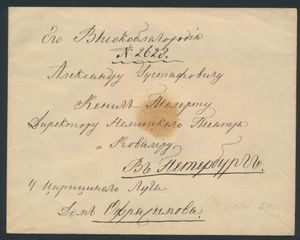 Его Высокоблагородію
№ 2623.
Александру Густафовичу
Кениг-Толерту
Директору Немецкаго Театра
и Кавалеру
Въ Петербургъ.
У Царицина Луга
Домъ